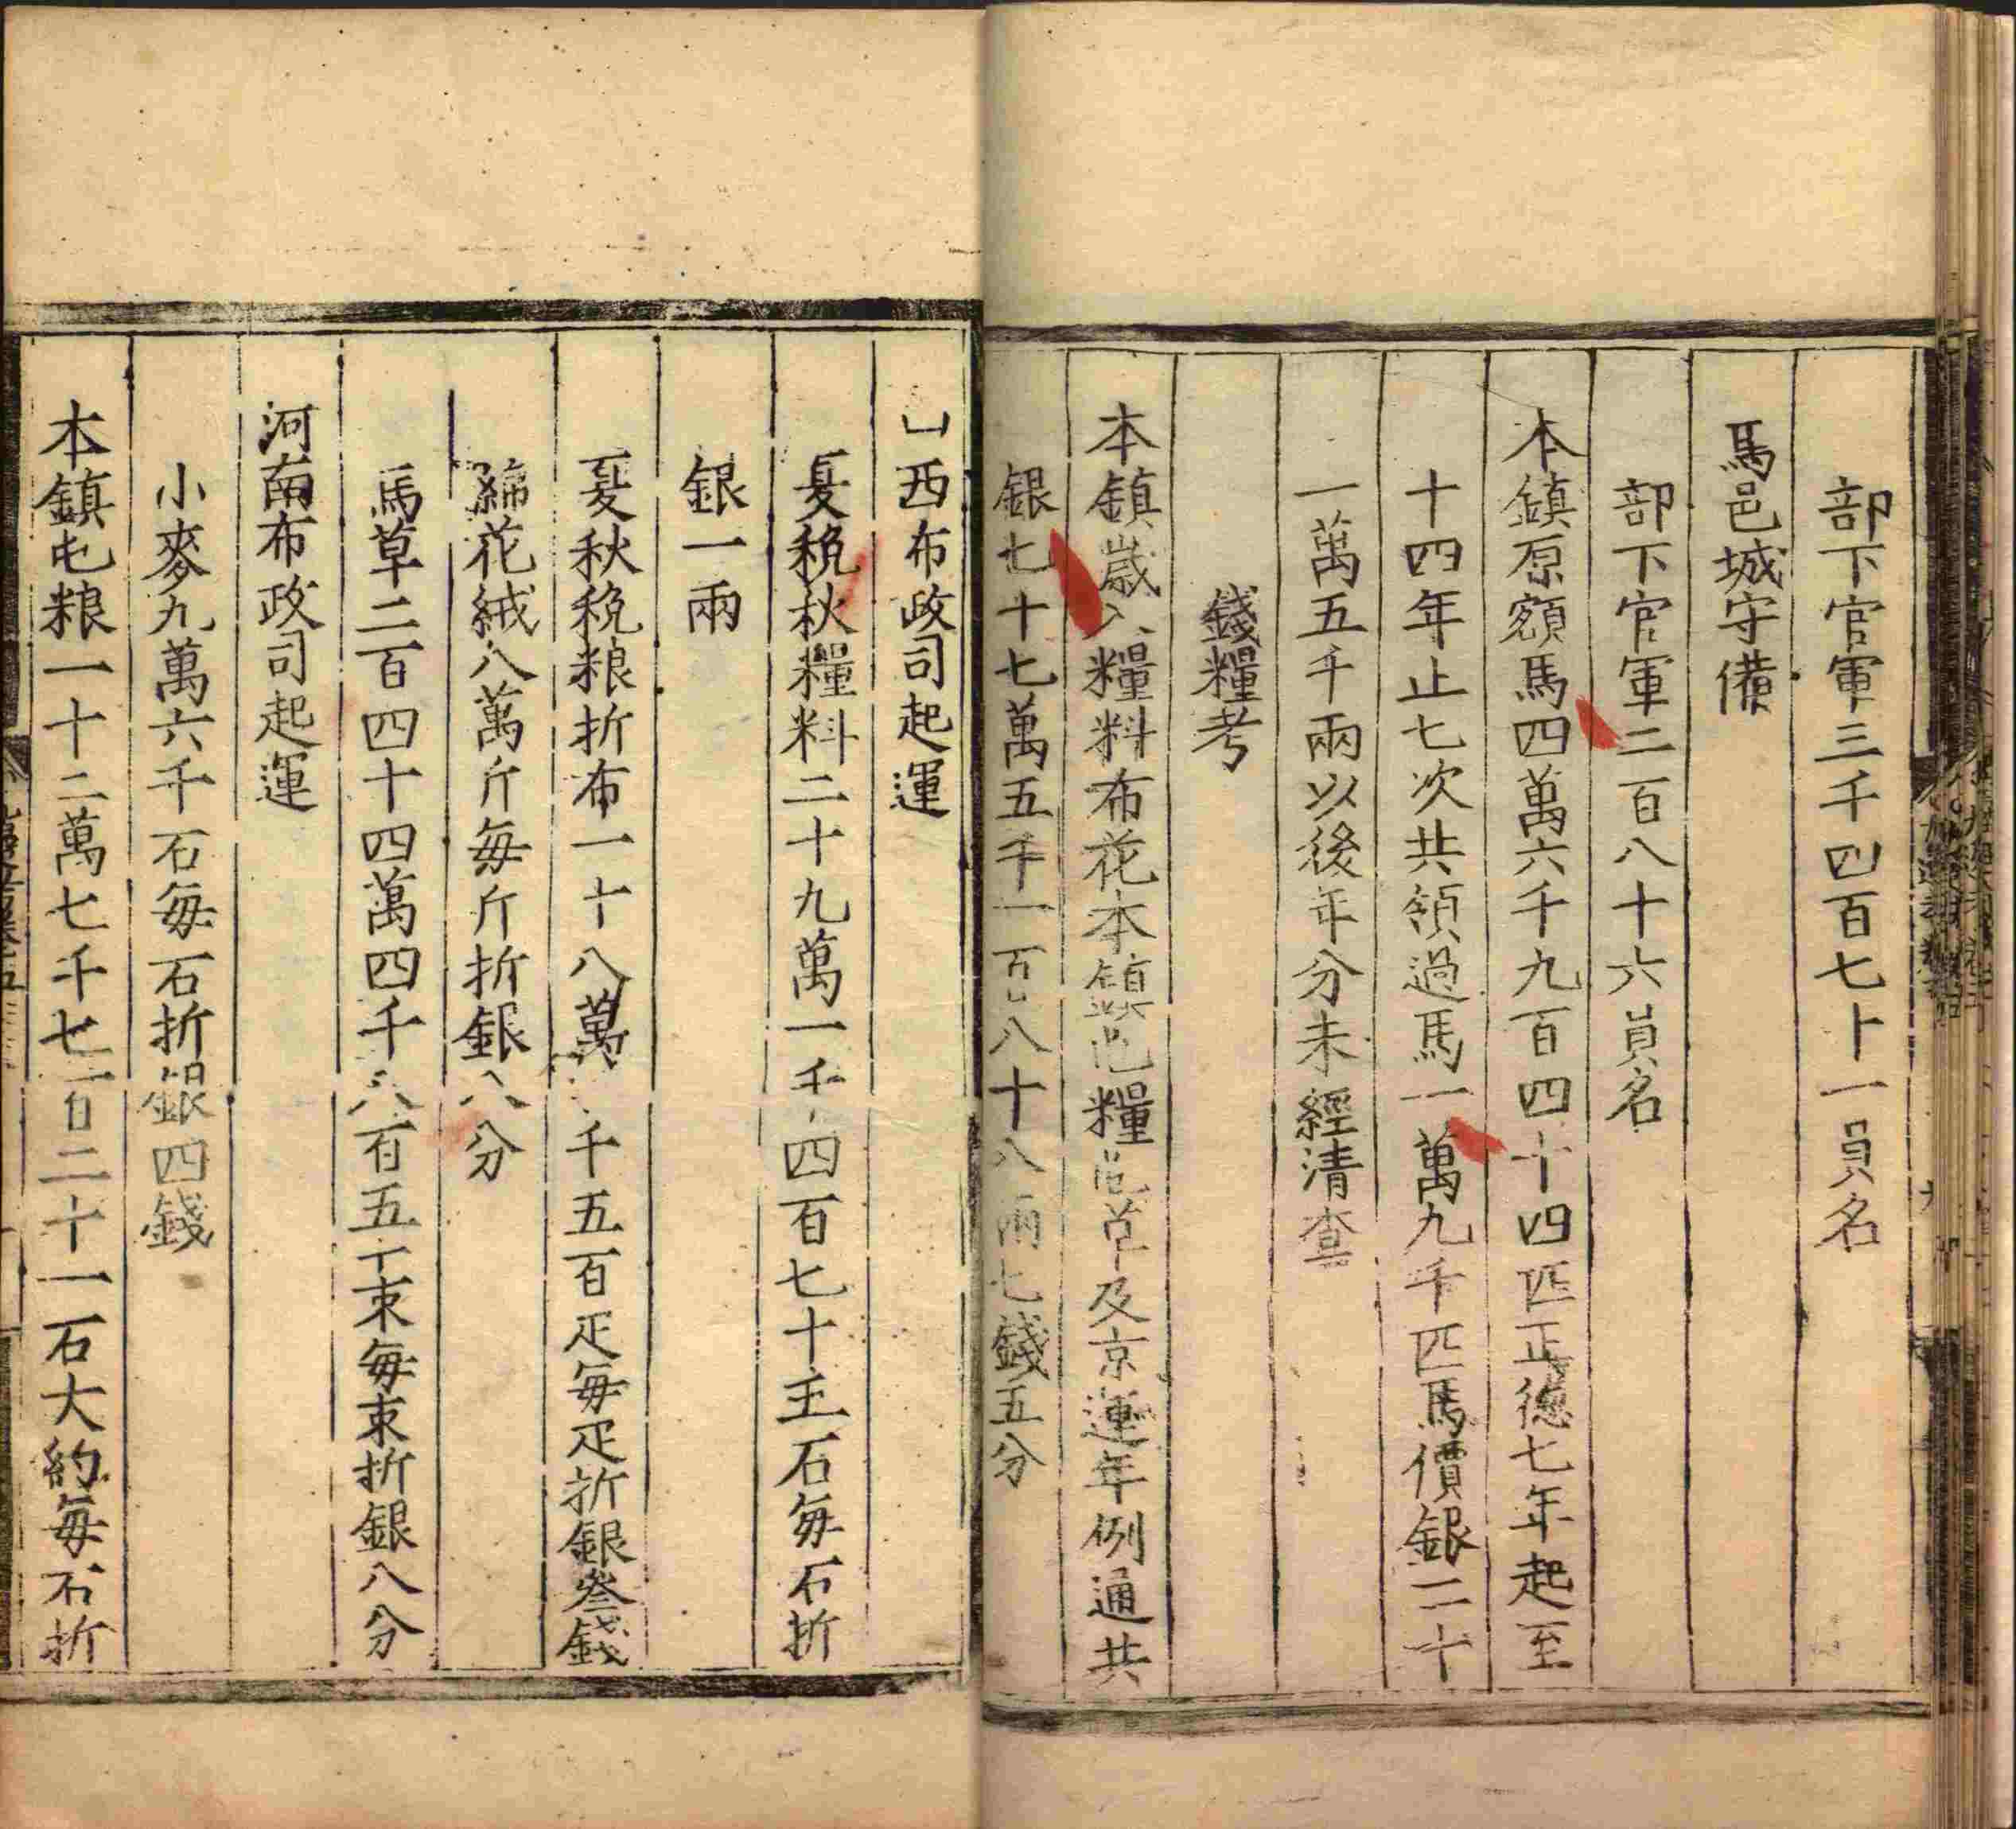 部下官軍三千四百七十一員名
馬邑城守備
部下官軍二百八十六員名
本鎮原額馬四萬六千九百四十四匹正德七年起至
十四年止七次共領過馬一萬九千匹馬價銀二十
一萬五千兩以後年分未經清查
錢糧考
本鎮歲入糧料布花本鎮屯糧屯草及京運年例通共
銀七十七萬五千一百八十八兩七錢五分
山西布政司起運
夏稅秋糧料二十九萬一千四百七十五石每石折
銀一兩
夏秋稅粮折布一十八萬千五百疋每疋折銀叁錢
綿花絨八萬斤每斤折銀八分
馬草二百四十四萬四千八百五十束每束折銀八分
河南布政司起運
小麥九萬六千石每石折銀四錢
本鎮屯粮一十二萬七千七百二十一石大約每石折